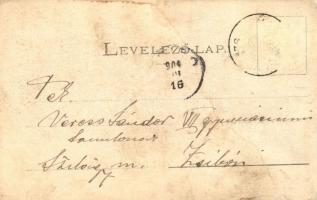 LEVELEZŐ-LAP.
904
III
16
Tek.
Veress Sándor VII gymnasiumi
tanulonak
Szilágy m. Zsibón